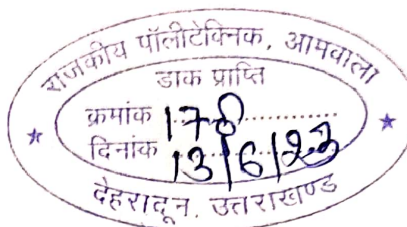 राजकीय पॉलीटेक्निक, आमवाला
डाक प्राप्ति
क्रमांक 178
दिनांक 13/6/23
देहरादून, उत्तराखण्ड